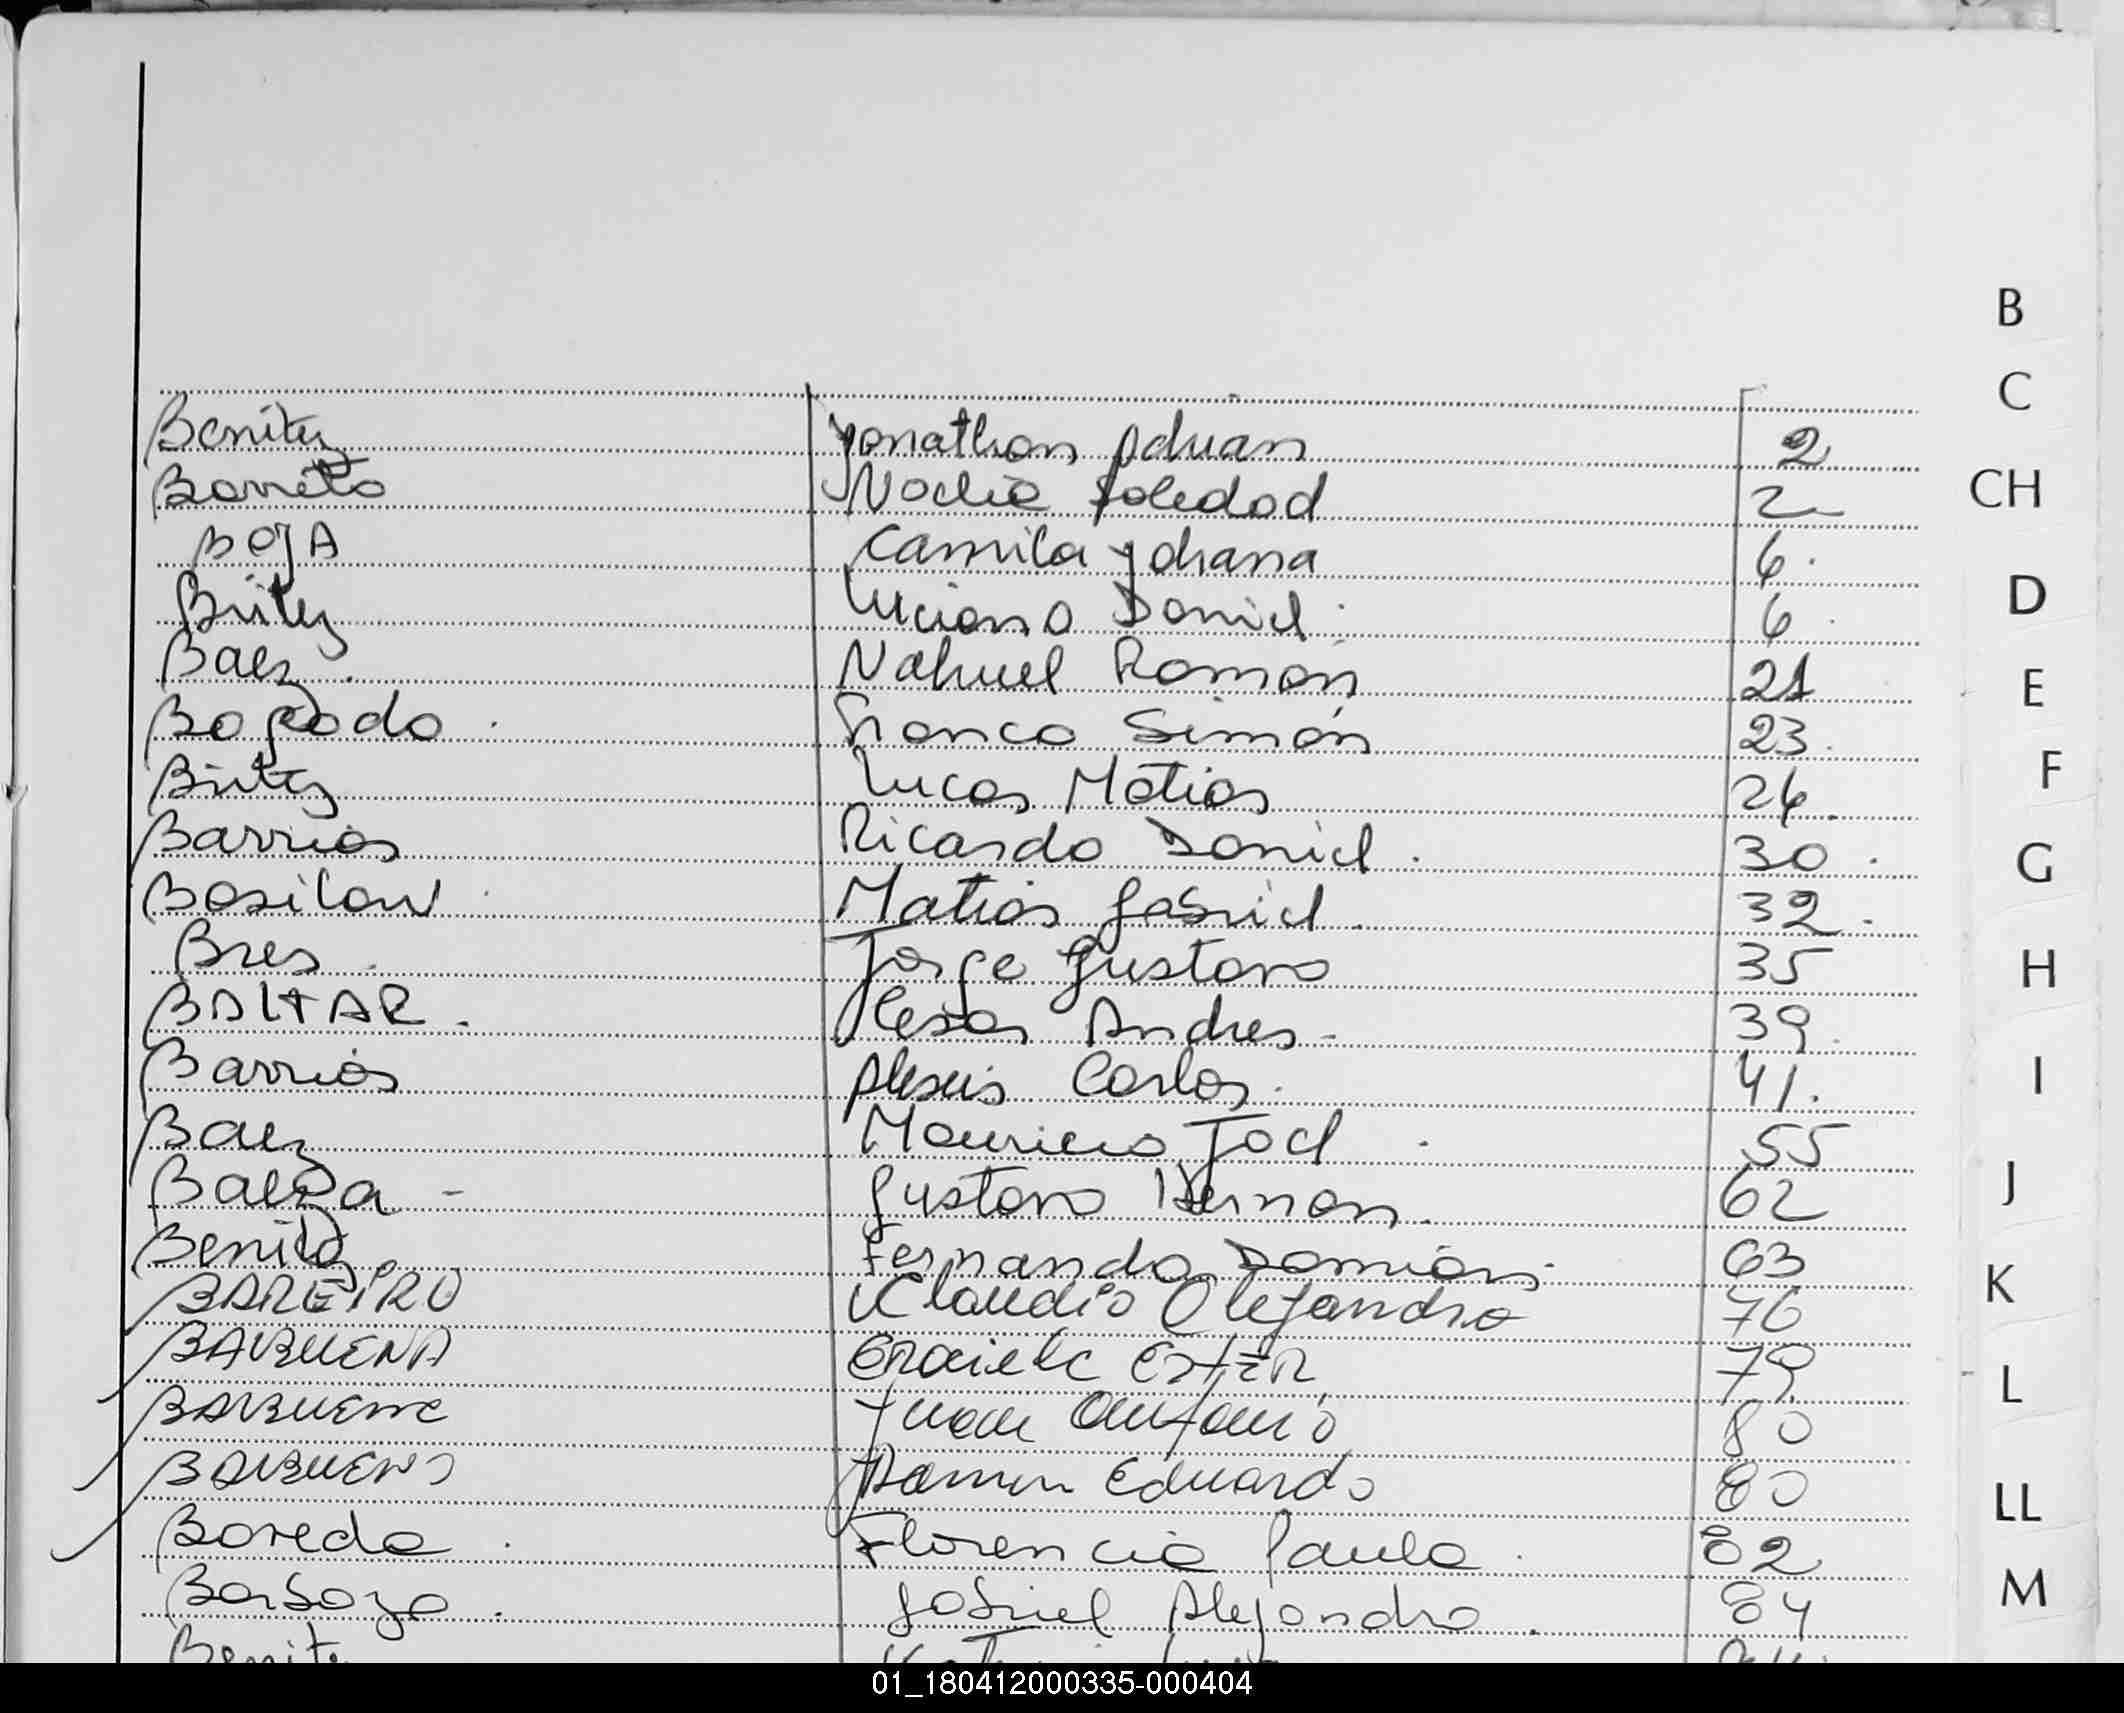 B
C
CH
D
E
F
G
H
I
J
K
L
LL
M
Benitez Jonathan Adrian 2
Barreto Noelia Soledad 2
BEJA Camila 6.
Britez Luciano Daniel. 6.
Baez. Nahuel Ramón 21
Bogado. Franco Simón 23.
Britez Lucas Matias 26.
Barrios Ricardo Daniel. 30.
Matias Gabriel. 32.
Bres. Jorge Gustavo 35
BALTAR. Cesar Andres. 39.
Barrios Alexis Carlos. 41.
Baez Mauricio Joel. 55
Baeza - Gustavo Hernan. 62
Benitez Fernando Damián. 63
BAREIRO Claudio Alejandro 76
BALBUENA Graciela Ester 79
BALBUENA Juan Antonio 80
BALBUENA Ramon Eduardo 80
Boveda. Florencia Paula. 82
Barboza. Gabriel Alejandro. 84
01_180412000335-000404